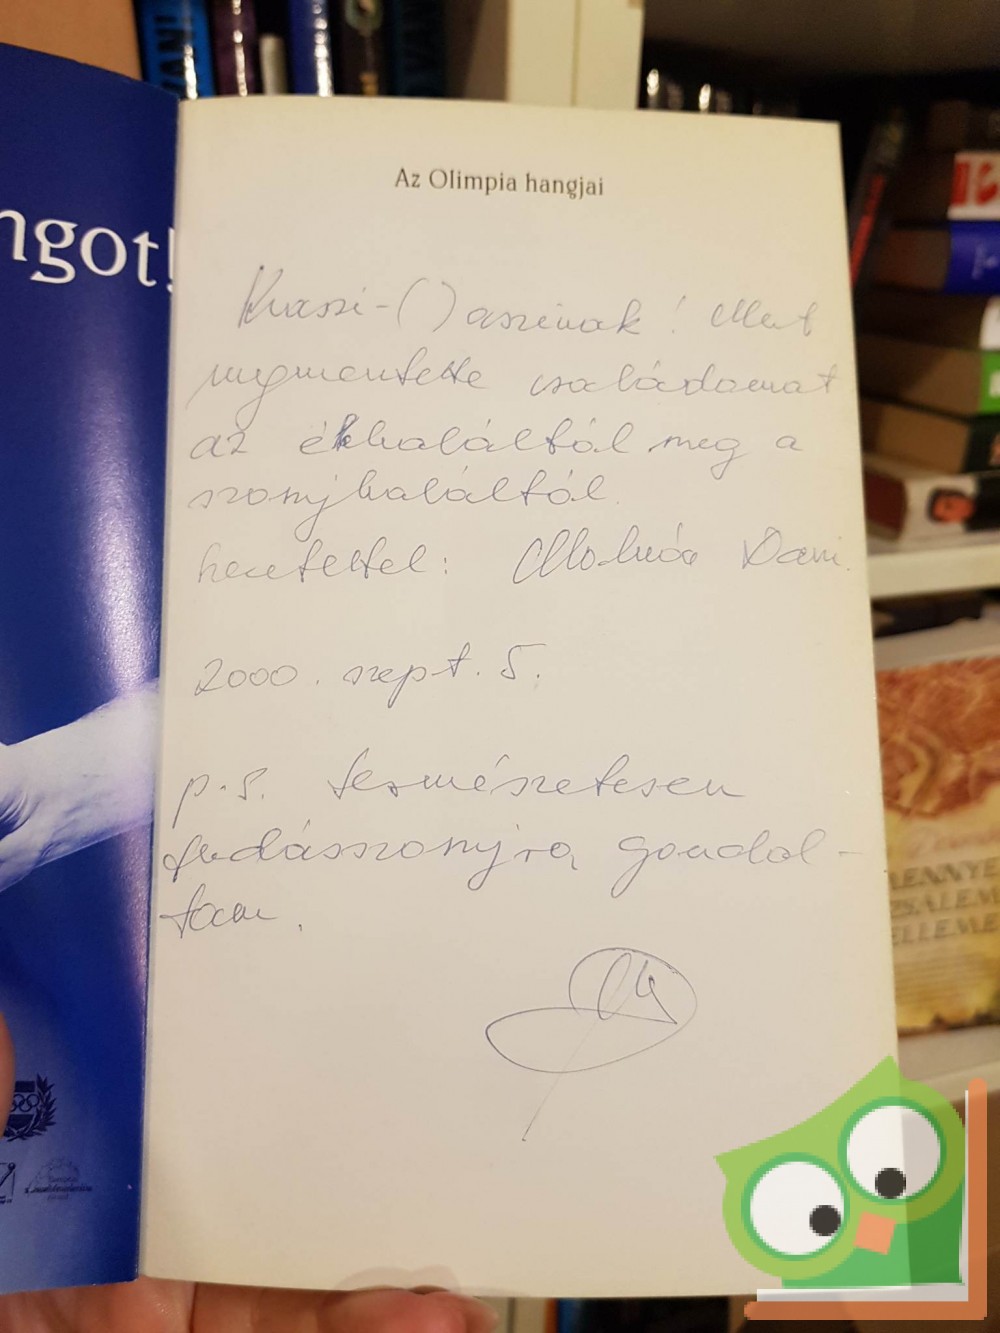 VANI
ngot!
Az Olimpia hangjai
Kvaszi-( ) aszinak! Mert
megmentette családomat
az éhhaláltól meg a
szomjhaláltól.
Szeretettel: Molnár Dani.
2000. szept. 5.
p.s. természetesen
tudásszomjra gondol-
tam.